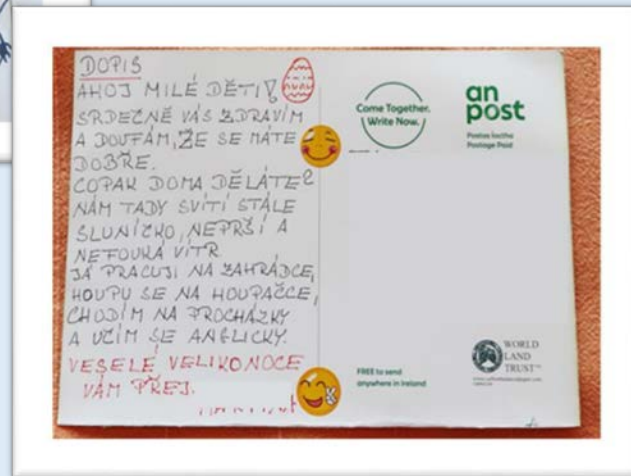 DOPIS
AHOJ MILÉ DĚTI!
SRDEČNĚ VÁS ZDRAVÍM
A DOUFÁM, ŽE SE MÁTE
DOBŘE.
COPAK DOMA DĚLÁTE?
NÁM TADY SVÍTÍ STÁLE
SLUNÍČKO, NEPRŠÍ A
NEFOUKÁ VÍTR
JÁ PRACUJI NA ZAHRÁDCE,
HOUPU SE NA HOUPAČCE,
CHODÍM NA PROCHÁZKY
A UČÍM SE ANGLICKY.
VESELÉ VELIKONOCE
VÁM PŘEJ.
Come Together.
Write Now.
an
post
Postas Íoctha
Postage Paid
FREE to send
anywhere in Ireland
WORLD
LAND
TRUST™